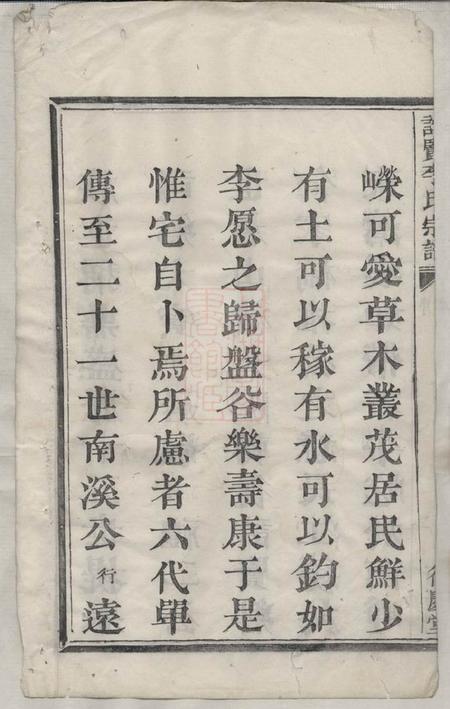 暨李氏宗譜
嶸可愛草木叢茂居民鮮少
有土可以稼有水可以釣如
李愿之歸盤谷樂壽康于是
惟宅自卜焉所慮者六代單
傳至二十一世南溪公行遠